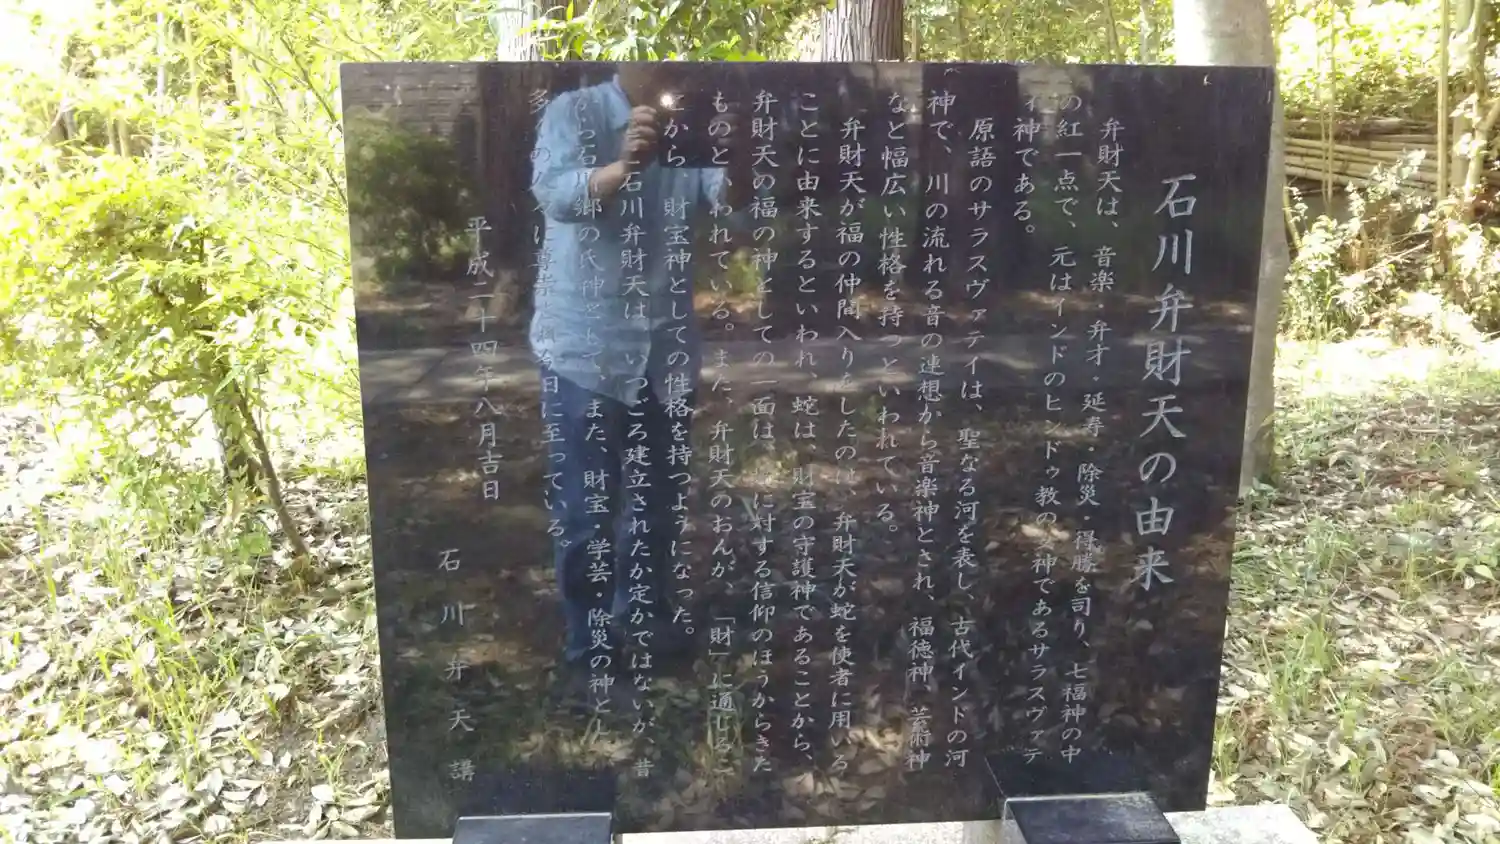 石川弁財天の由来
弁財天は、音楽・弁才・延寿・除災・得勝を司り、七福神の中
の紅一点で、元はインドのヒンドゥ教の女神であるサラスヴァテ
ィ神である。
原語のサラスヴァテイは、聖なる河を表し、古代インドの河
神で、川の流れる音の連想から音楽神とされ、福徳神、芸術神
など幅広い性格を持つといわれている。
弁財天が福の仲間入りをしたのは、弁財天が蛇を使者に用いる
ことに由来するといわれ、蛇は、財宝の守護神であることから、
弁財天の福の神としての一面は、蛇に対する信仰のほうからきた
ものといわれている。また、弁財天のおんが、「財」に通じるこ
とから、財宝神としての性格を持つようになった。
石川弁財天は、いつごろ建立されたか定かではないが、昔
から石川郷の氏神として、また、財宝・学芸・除災の神とし
多くの人々に尊崇され今日に至っている。
平成二十四年八月吉日
石川弁天講